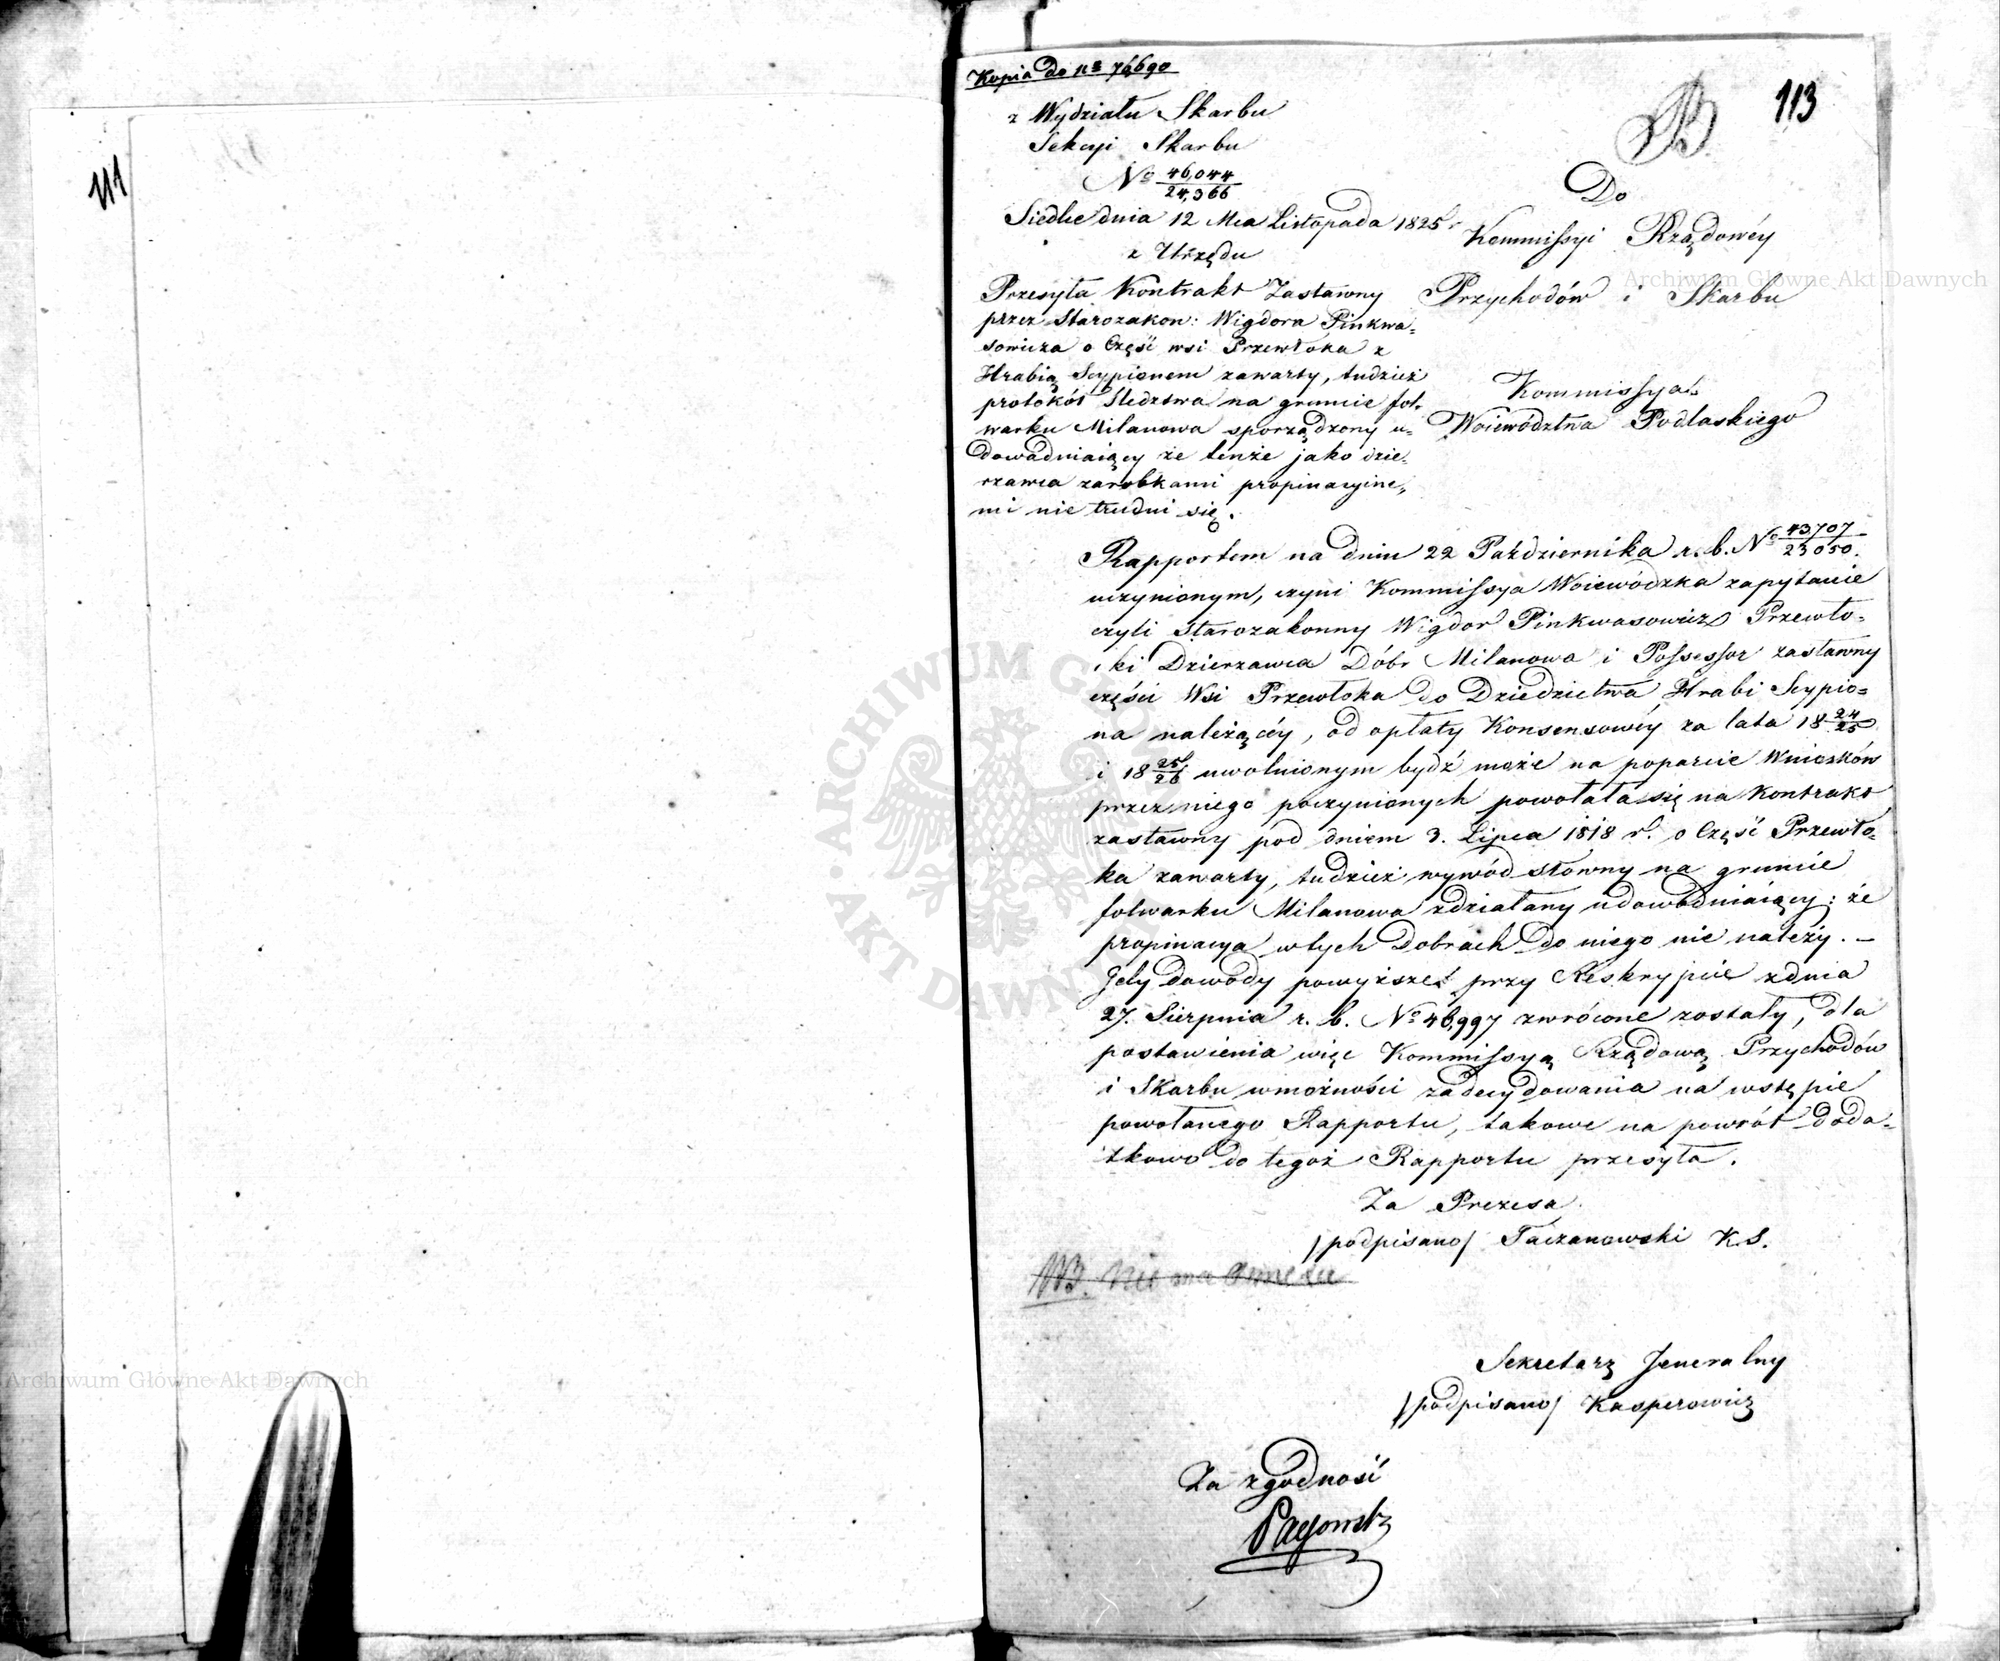 111
Kopia do Nº 76690
113
B
z Wydziału Skarbu
Sekcyi Skarbu
Nº 46,044
24,366
Siedlce dnia 12 Mca Listopada 1825 r
z Urzędu
Przesyła Kontrakt Zastawny
przez Starozakon: Wigdora Pinkwa=
sowicza o Część wsi Przewłoka z
Hrabią Scypionem zawarty, tudzież
protokół śledztwa na gruncie fol=
warku Milanowa sporządzony u=
dowadniaiący że tenże jako dzie=
rzawca zarobkami propinacyine,
mi nie trudni się.
Do
Kommissyi Rządowéy
Przychodów i Skarbu
Kommissya
Woiewództwa Podlaskiego
Rapportem na dniu 22 Października r. b. Nº 43707
23050.
uczynionym, czyni Kommissya Woiewódzka zapytanie
czyli Starozakonny Wigdor Pinkwasowicz Przewło=
cki Dzierzawca Dóbr Milanowa i Possessor zastawny
części Wsi Przewłoka do Dziedzictwa Hrabi Scypio=
na należącéy, od opłaty Konsensowéy za lata 18 24/25
i 18 25/26 uwolnionym bydź może na poparcie Wniosków
przez niego poczynionych powołała się na Kontrakt
zastawny pod dniem 3. Lipca 1818 r. o Część Przewło=
ka zawarty, tudzież wywód słowny na gruncie
folwarku Milanowa zdziałany udowadniaiący: że
propinacya w tych Dobrach do niego nie należy. –
Gdy dowody powyższe przy Reskrypcie z dnia
27. Sierpnia r. b. Nº 46,997 zwrócone zostały, dla
postawienia więc Kommissyą Rządową Przychodów
i Skarbu w możności zadecydowania na wstępie
powołanego Rapportu, takowe na powrót doda=
tkowo do tegoż Rapportu przesyła.
Za Prezesa
/podpisano/ Taczanowski K. S.
NB. Nie ma
Sekretarz Jeneralny
/podpisano/ Kasperowicz
Za zgodność
Archiwum Główne Akt Dawnych
Archiwum Główne Akt Dawnych
ARCHIWUM GŁÓWNE AKT DAWNYCH